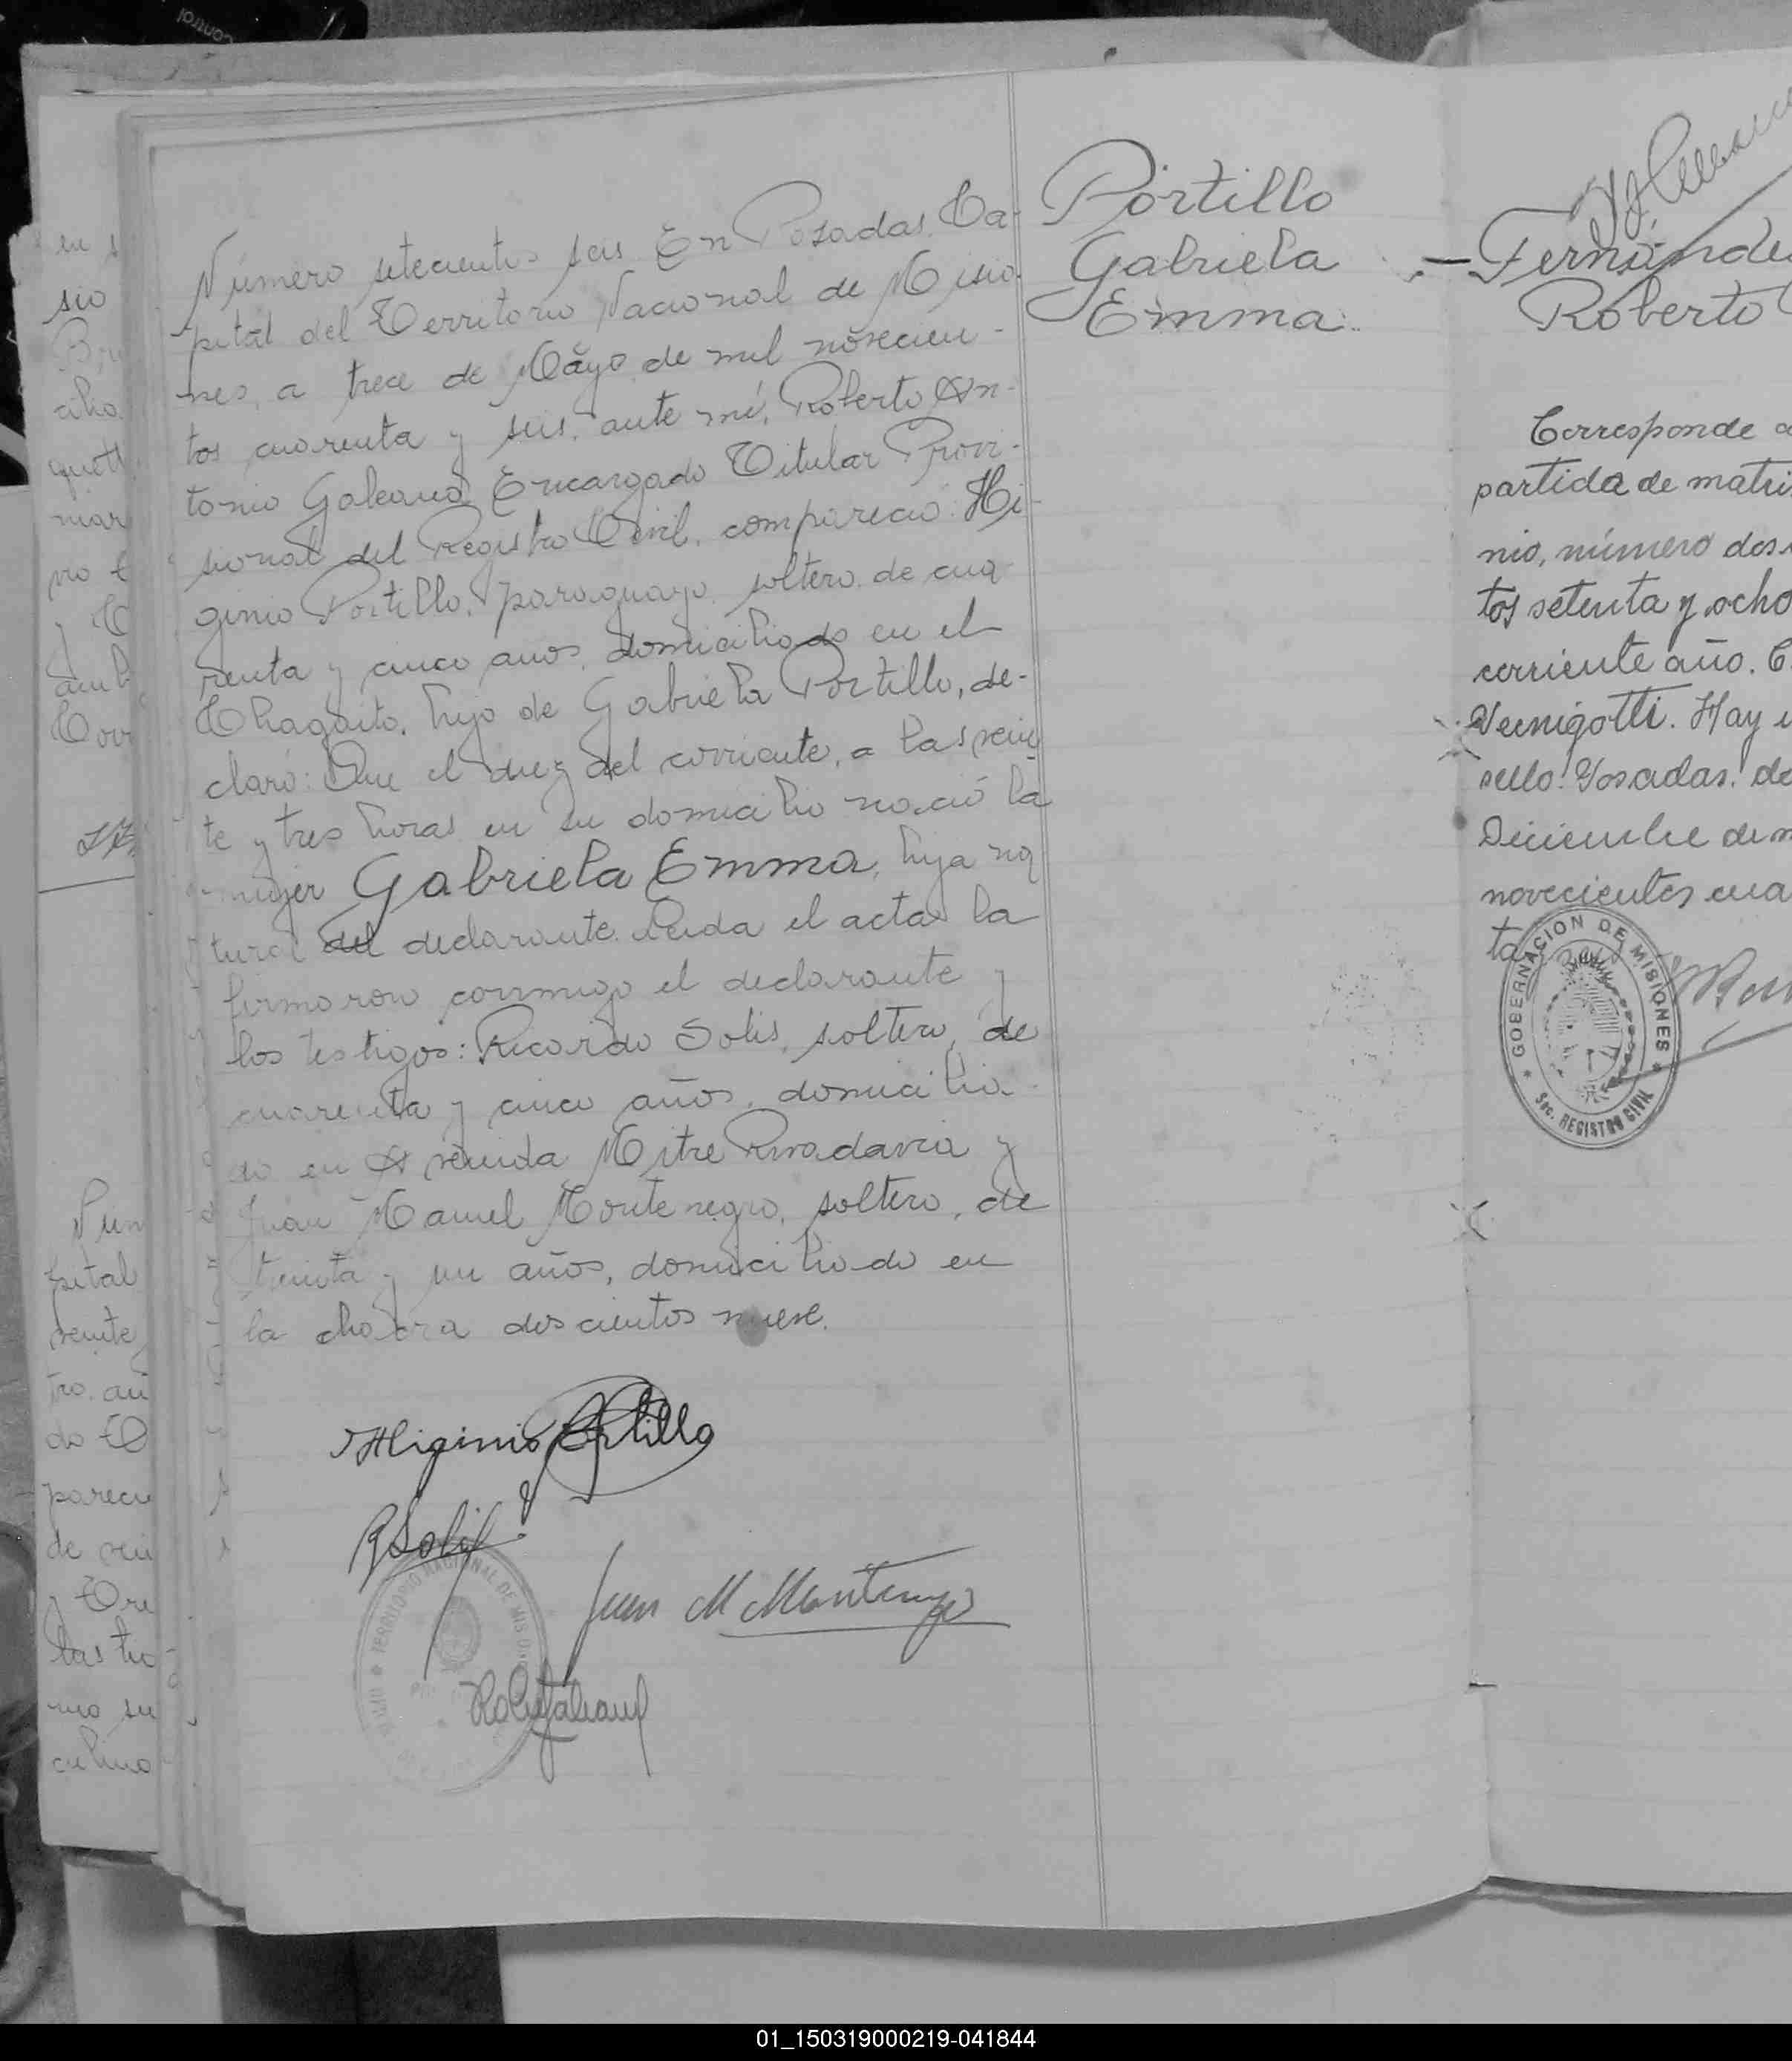 control
Número setecientos seis En Posadas, Ca-
pital del Territorio Nacional de Misio-
nes, a trece de Mayo de mil novecien-
tos cuarenta y seis, ante mí, Roberto An-
tonio Galeano Encargado Titular Provi-
sional del Registro Civil, compareció: Hi-
ginio Portillo, paraguayo, soltero, de cua-
renta y cinco años, domiciliado en el
Chaquito, hijo de Gabriela Portillo, de-
claró: Que el diez del corriente, a las vein
te y tres horas en su domicilio nació la
mujer Gabriela Emma, hija na
tural del declarante. Leida el acta la
firmaron conmigo el declarante y
los testigos: Ricardo Solis, soltero, de
cuarenta y cinco años, domicilia-
do en Avenida Mitre Rivadavia y
Juan Manuel Montenegro, soltero, de
treinta y un años, domiciliado en
la chacra doscientos nueve.
Higinio Portillo
RSolis
Juan M Montenegro
TERRITORIO NACIONAL DE MISIONES
Portillo
Gabriela
Emma
Fernánde
Roberto
Corresponde a
partida de matri
nio, número dosc
tos setenta y ocho
corriente año. C.
Vernigotti. Hay u
sello. Posadas. de
Diciembre de m
novecientos cua
ta
GOBERNACION DE MISIONES
Sec. REGISTRO CIVIL
en s
sio
cilio
quett
mar
pro
y
amb
Corr
Núm
pital
veinte
tro. an
do
parecu
de vei
y Ore
las ho
mo su
culino
01_150319000219-041844